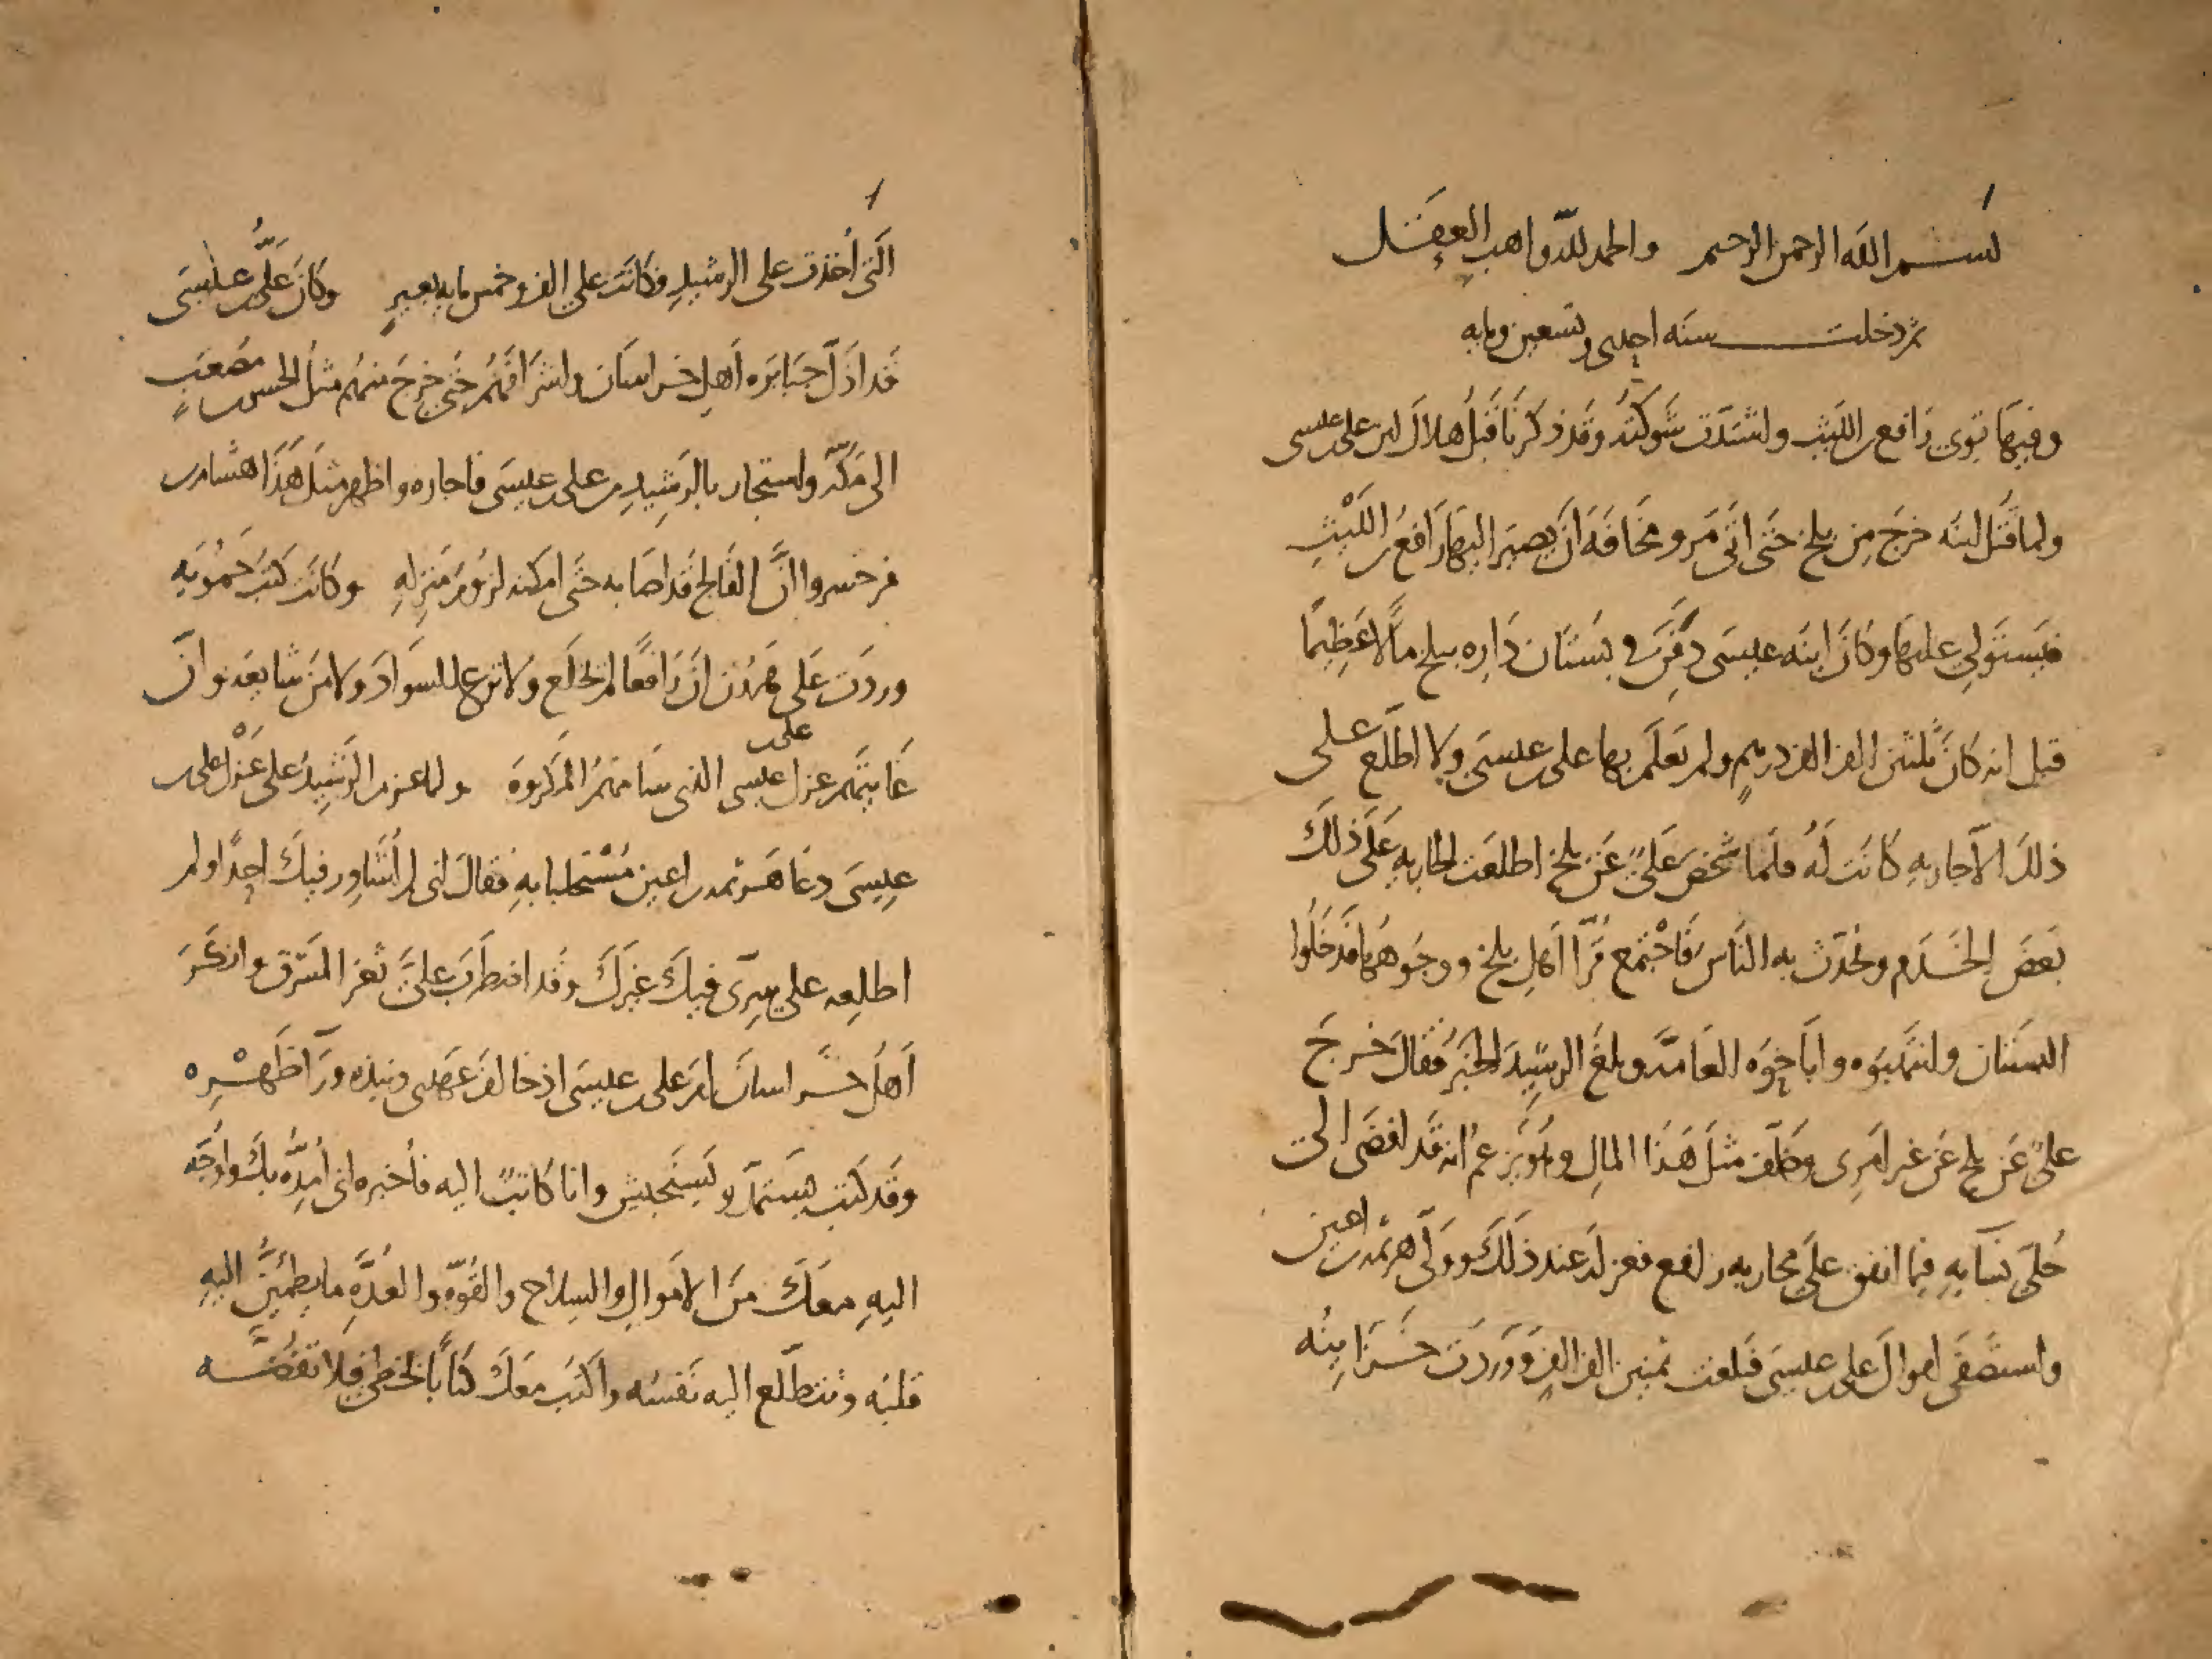 بسم الله الرحمن الرحيم والحمد لله واهب العقل
ثم دخلت سنه احدى وتسعين ومايه
وفيها قوى رافع بن الليث واشتدت شوكته وقد ذكرنا قتل هلال لابن على بن عيسى
ولما قتل ابنه خرج من بلخ حتى اتى مرو مخافة ان يصير اليها رافع بن الليث
فيستولى عليها وكان ابنه عيسى دفن في بستان داره ببلخ مالا عظيما
قيل انه كان ثلثين الف الف درهم ولم يعلم بها على بن عيسى ولا اطلع على
ذلك الا جاريه كانت له فلما شخص على عن بلخ اطلعت الجاريه على ذلك
بعض الخدم وتحدث به الناس فاجتمع قرا اهل بلخ ووجوهها فدخلوا
البستان وانتهبوه واباحوه العامة وبلغ الرشيد الخبر فقال خرج
على عن بلخ عن غير امرى وخلف مثل هذا المال وهو يزعم انه قد افضى الى
حلى نسايه فيما انفق على محاربه رافع فعزله عند ذلك وولى هرثمه بن اعين
واستصفى اموال على بن عيسى فبلغت ثمنين الف الف ووردت خزاينه
التى اخذت على الرشيد وكانت على الف وخمس مايه بعير وكان على بن عيسى
قد اذل جبابره اهل خراسان واشرافهم حتى خرج منهم مثل الحسن بن مصعب
الى مكة واستجار بالرشيد من على بن عيسى فاجاره واظهر مثل هذا هشام بن
فرخسروا ان الفالج قد اصابه حتى امكنه لزوم منزله وكانت كتب حمويه
وردت على هرون ان رافعا لم يخلع ولا نزع السواد ولا من شايعه وان
غايتهم عزل على بن عيسى الذى سامهم المكروه ولما عزم الرشيد على عزل على بن
عيسى دعا هرثمه بن اعين مستخليا به فقال انى لم اشاور فيك احدا ولم
اطلعه على سرى فيك غيرك وقد اضطرب على ثغر المشرق وانكر
اهل خراسان امر على بن عيسى اذ خالف عهدى ونبذه ورا ظهره
وقد كتب يستمد ويستجيش وانا كاتب اليه فأخبره انى أمده بك واوجه
اليه معك من الاموال والسلاح والقوه والعده ما يطمئن اليه
قلبه وتتطلع اليه نفسه واكتب معك كتابا بخطى فلا تفضنه